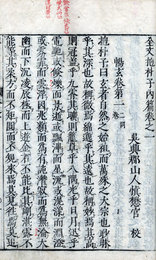 抱朴子内篇卷之一
吳興郡山人慎懋官 校
暢玄卷第一
抱朴子曰玄者自然之始祖而萬殊之大宗也眇眛
乎其深也故稱微焉綿邈乎其遠也故稱妙焉其高
則冠蓋乎九霄其曠則籠罩乎八隅光乎日月迅乎
電馳或倏爍而景逝或飄滭而星流或滉漾於淵澄
或雰霏而雲浮因兆類而為有託潛寂而為無淪大
幽而下沉凌辰極而上游金石不能比其剛湛露不
能等其柔方而不矩圓而不規來焉莫見往焉莫追